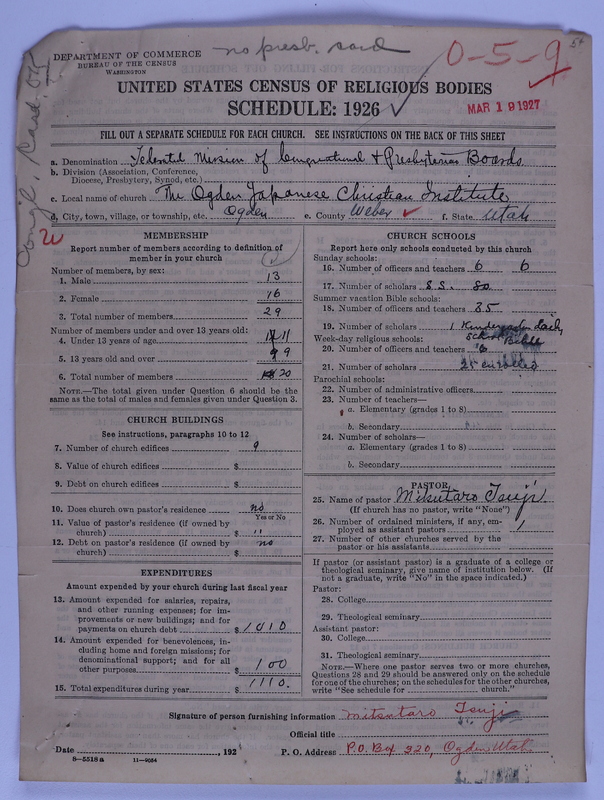 no presb. card
0-5-9
DEPARTMENT OF COMMERCE
BUREAU OF THE CENSUS
WASHINGTON
UNITED STATES CENSUS OF RELIGIOUS BODIES
SCHEDULE: 1926
MAR 19 1927
FILL OUT A SEPARATE SCHEDULE FOR EACH CHURCH. SEE INSTRUCTIONS ON THE BACK OF THIS SHEET
a. Denomination Federated Mission of Congregational & Presbyterian Boards
b. Division (Association, Conference,
Diocese, Presbytery, Synod, etc.)
c. Local name of church The Ogden Japanese Christian Institute
d. City, town, village, or township, etc. Ogden e. County Weber f. State Utah
MEMBERSHIP
Report number of members according to definition of
member in your church
Number of members, by sex:
1. Male 13
2. Female 16
3. Total number of members 29
Number of members under and over 13 years old:
4. Under 13 years of age 11
5. 13 years old and over 9
6. Total number of members 20
NOTE.—The total given under Question 6 should be the
same as the total of males and females given under Question 3.
CHURCH BUILDINGS
See instructions, paragraphs 10 to 12
7. Number of church edifices 9
8. Value of church edifices $
9. Debt on church edifices $
10. Does church own pastor's residence no
Yes or No
11. Value of pastor's residence (if owned by
church) $ "
12. Debt on pastor's residence (if owned by
church) $ no
EXPENDITURES
Amount expended by your church during last fiscal year
13. Amount expended for salaries, repairs,
and other running expenses; for im-
provements or new buildings; and for
payments on church debt $ 1010
14. Amount expended for benevolences, in-
cluding home and foreign missions; for
denominational support; and for all
other purposes $ 100
15. Total expenditures during year $ 1110.
CHURCH SCHOOLS
Report here only schools conducted by this church
Sunday schools:
16. Number of officers and teachers 6 6
17. Number of scholars S.S. 80
Summer vacation Bible schools:
18. Number of officers and teachers 35
19. Number of scholars 1 Kindergarten Daily
Week-day religious schools: Bible
20. Number of officers and teachers 6
21. Number of scholars 25 enrolled
Parochial schools:
22. Number of administrative officers
23. Number of teachers—
a. Elementary (grades 1 to 8)
b. Secondary
24. Number of scholars—
a. Elementary (grades 1 to 8)
b. Secondary
PASTOR
25. Name of pastor Mitsutaro Tsuji
(If church has no pastor, write "None")
26. Number of ordained ministers, if any, em-
ployed as assistant pastors 1
27. Number of other churches served by the
pastor or his assistants
If pastor (or assistant pastor) is a graduate of a college or
theological seminary, give name of institution below. (If
not a graduate, write "No" in the space indicated.)
Pastor:
28. College
29. Theological seminary
Assistant pastor:
30. College
31. Theological seminary
NOTE.—Where one pastor serves two or more churches,
Questions 28 and 29 should be answered only on the schedule
for one of the churches; on the schedules for the other churches,
write "See schedule for church."
Signature of person furnishing information Mitsutaro Tsuji
Official title
Date , 192
P. O. Address P.O. Box 220, Ogden Utah
8—5518 a 11—9054